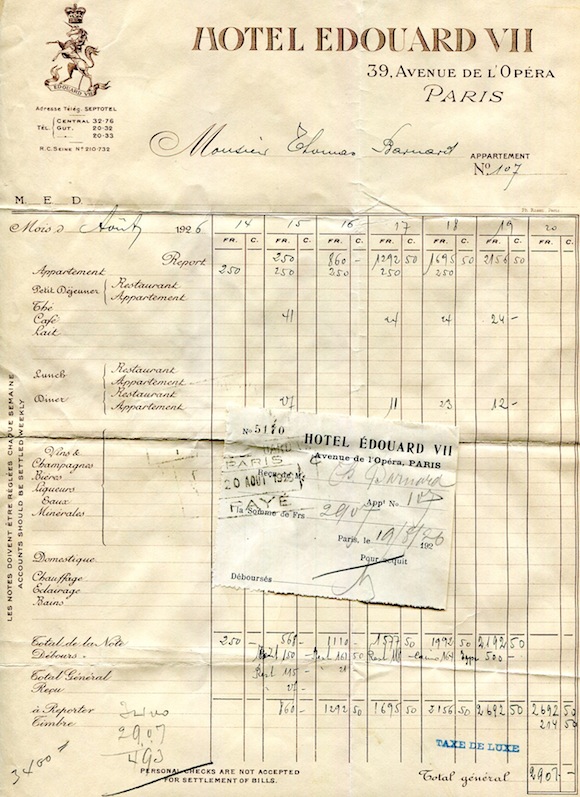 HOTEL EDOUARD VII
39, AVENUE DE L'OPÉRA
PARIS
EDOUARD VII
Adresse Télég. SEPTOTEL
TÉL. CENTRAL 32-76
GUT. 20-32
20-33
R.C. SEINE Nº 210-732
Monsieur Thomas Barnard
APPARTEMENT
Nº 107
M. E. D.
Mois d Août 1926 14 15 16 17 18 19 20
FR. C. FR. C. FR. C. FR. C. FR. C. FR. C. FR. C.
Report 250 860 - 1292 50 1695 50 2156 50
Appartement 250 250 250 250 250
Petit Déjeuner Restaurant
Appartement
Thé
Café 41 24 24 24 -
Lait
Lunch Restaurant
Appartement
Diner Restaurant
Appartement 27 11 23 12 -
Vins &
Champagnes
Bières
Liqueurs
Eaux
Minérales
Domestique
Chauffage
Eclairage
Bains
Total de la Note 250 - 568 - 1110 - 1577 50 1992 50 2192 50
Débours 500 -
Total Général
Reçu
à Reporter 860 - 1292 50 1695 50 2156 50 2692 50 2692 50
Timbre 214 50
TAXE DE LUXE
Total général 2907 -
PERSONAL CHECKS ARE NOT ACCEPTED
FOR SETTLEMENT OF BILLS.
2907
493
3400
LES NOTES DOIVENT ÊTRE RÉGLÉES CHAQUE SEMAINE
ACCOUNTS SHOULD BE SETTLED WEEKLY
No 5170
HOTEL ÉDOUARD VII
Avenue de l'Opéra, PARIS
PARIS
20 AOUT 1926
PAYÉ
Reçu de M
Barnard
Appt No 107
la Somme de Frs 2907
Paris, le 19/8/26 192
Pour acquit
Déboursés